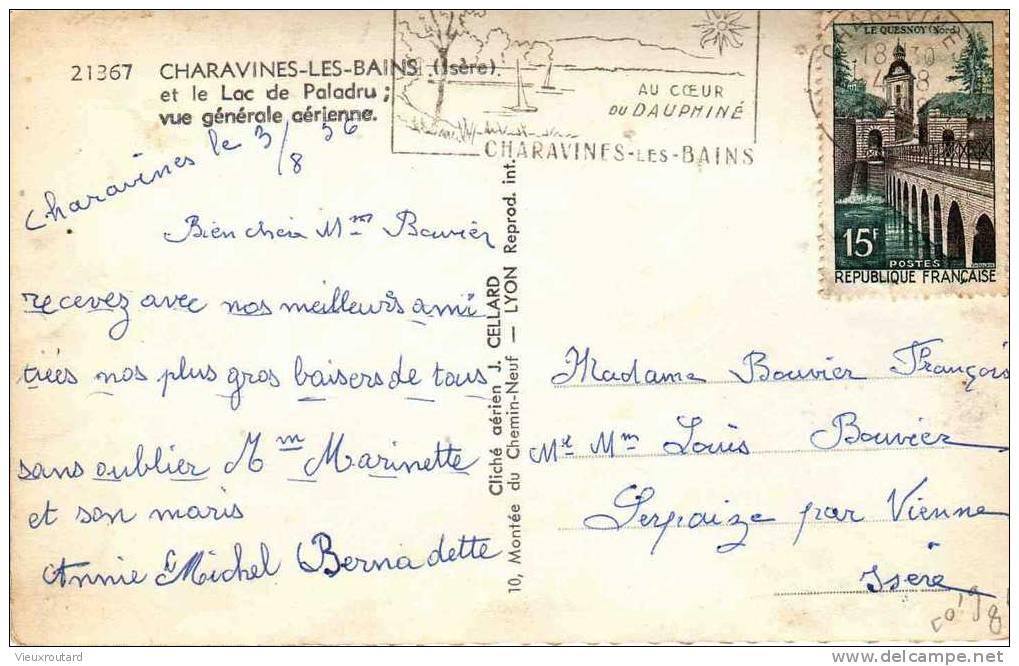 21367 CHARAVINES-LES-BAINS (Isère)
et le Lac de Paladru ;
vue générale aérienne.
Charavines le 3/8 56
Bien cheis Mm Bouvier
recevez avec nos meilleurs ami
tiées nos plus gros baisers de tous
sans oublier Mm Marinette
et son maris
Annie Michel Bernadette
Cliché aérien J. CELLARD
10, Montée du Chemin-Neuf — LYON Reprod. int.
AU CŒUR
DU DAUPHINÉ
CHARAVINES-LES-BAINS
CHARAVINE
18 30
4 8
LE QUESNOY (Nord)
15F
POSTES
RÉPUBLIQUE FRANÇAISE
Madame Bouvier François
Mr Mm Louis Bouvier
Serpaize par Vienne
Isère
Vieuxroutard
delcampe.net